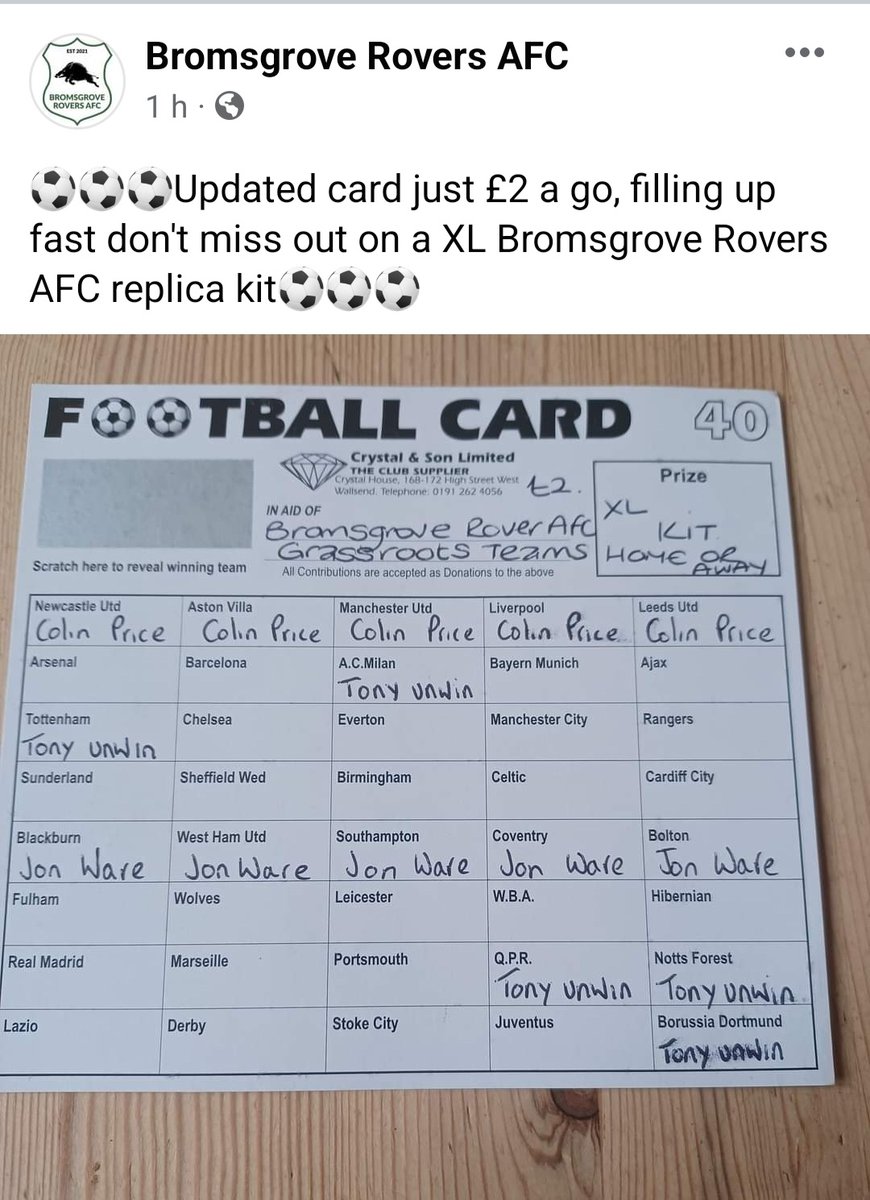 EST 2021
BROMSGROVE
ROVERS AFC
Bromsgrove Rovers AFC
1 h ·
⚽⚽⚽Updated card just £2 a go, filling up
fast don't miss out on a XL Bromsgrove Rovers
AFC replica kit⚽⚽⚽
FOOTBALL CARD 40
Crystal & Son Limited
THE CLUB SUPPLIER
Crystal House, 168-172 High Street West
Wallsend. Telephone: 0191 262 4056
£2.
Prize
XL
KIT
HOME OR
AWAY
IN AID OF
Bromsgrove Rover Afc
Grassroots Teams
All Contributions are accepted as Donations to the above
Scratch here to reveal winning team
Newcastle Utd Aston Villa Manchester Utd Liverpool Leeds Utd
Colin Price Colin Price Colin Price Colin Price Colin Price
Arsenal Barcelona A.C.Milan Bayern Munich Ajax
Tony unwin
Tottenham Chelsea Everton Manchester City Rangers
Tony unwin
Sunderland Sheffield Wed Birmingham Celtic Cardiff City
Blackburn West Ham Utd Southampton Coventry Bolton
Jon Ware Jon Ware Jon Ware Jon Ware Jon Ware
Fulham Wolves Leicester W.B.A. Hibernian
Real Madrid Marseille Portsmouth Q.P.R. Notts Forest
Tony unwin Tony unwin
Lazio Derby Stoke City Juventus Borussia Dortmund
Tony unwin